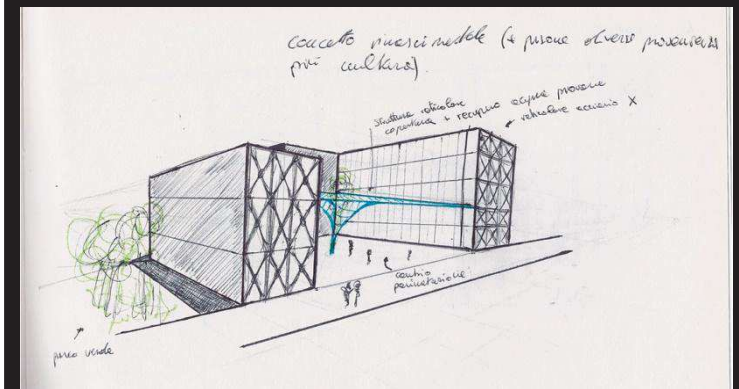 concetto rinascimentale (+ persone diverse provenienza
più cultura).
struttura reticolare
copertura + recupero acqua piovana
reticolare acciaio X
cambio
pavimentazione
parco verde